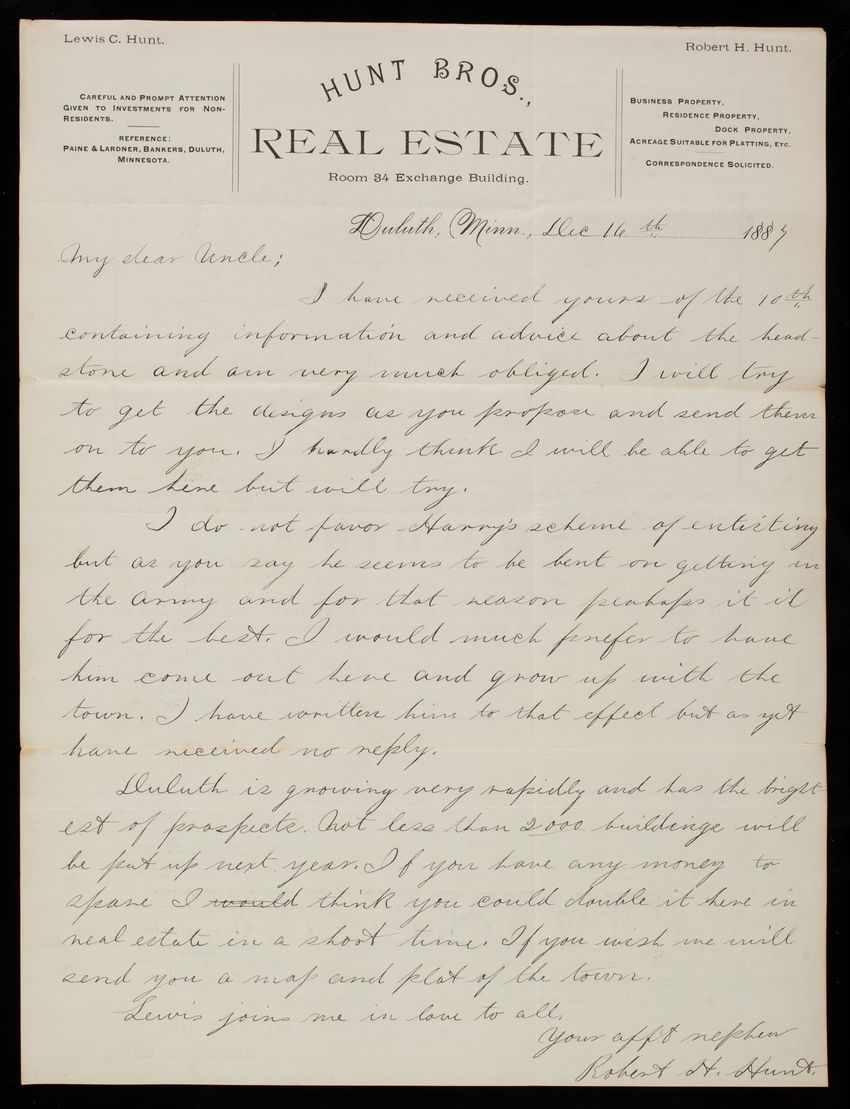 Lewis C. Hunt.
Robert H. Hunt.
HUNT BROS.,
REAL ESTATE
Room 34 Exchange Building.
CAREFUL AND PROMPT ATTENTION
GIVEN TO INVESTMENTS FOR NON-
RESIDENTS.
REFERENCE:
PAINE & LARDNER, BANKERS, DULUTH,
MINNESOTA.
BUSINESS PROPERTY,
RESIDENCE PROPERTY,
DOCK PROPERTY,
ACREAGE SUITABLE FOR PLATTING, ETC.
CORRESPONDENCE SOLICITED.
Duluth, Minn., Dec 16th 1887
My dear Uncle;
I have received yours of the 10th
containing information and advice about the head-
stone and am very much obliged. I will try
to get the designs as you propose and send them
on to you. I hardly think I will be able to get
them here but will try.
I do not favor Harry's scheme of entisting
but as you say he seems to be bent on getting in
the army and for that reason perhaps it it
for the best. I would much prefer to have
him come out here and grow up with the
town. I have written him to that effect but as yet
have received no reply.
Duluth is growing very rapidly and has the bright-
est of prospects. Not less than 2000 buildings will
be put up next year. If you have any money to
spare I would think you could double it here in
real estate in a short time. If you wish we will
send you a map and plat of the town.
Lewis joins me in love to all.
Your afft nephew
Robert H. Hunt.